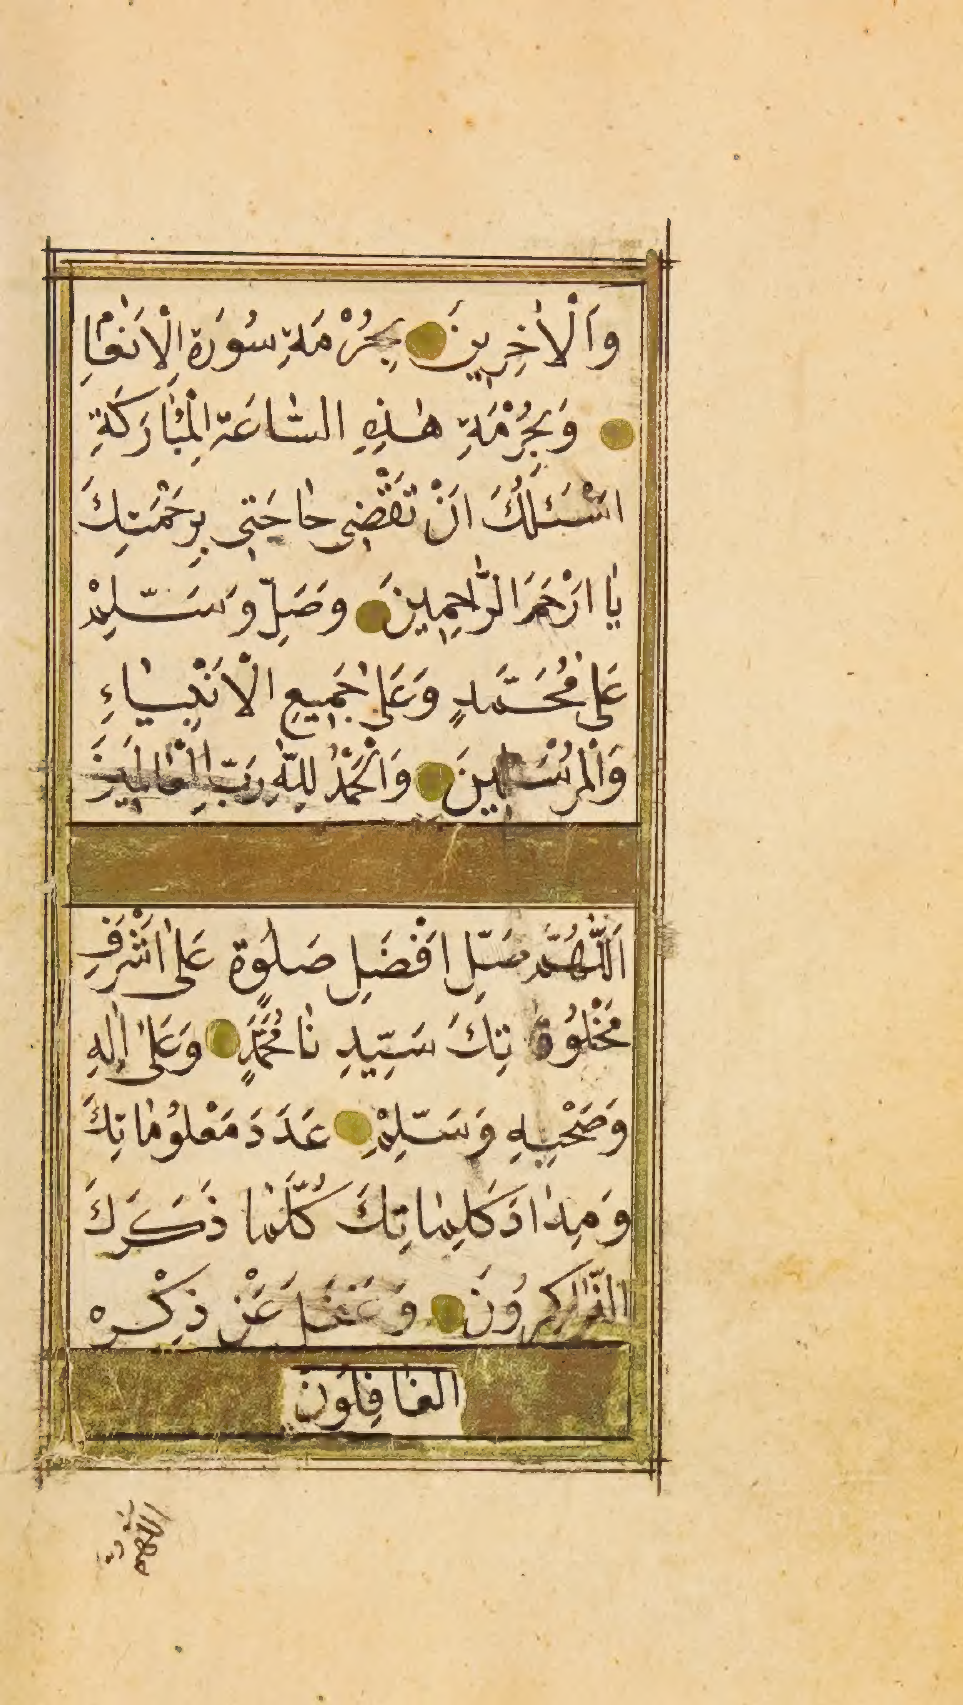 وَالْاٰخِرِينَ بِحُرْمَةِ سُورَةِ الْاَنْعَامِ
وَبِحُرْمَةِ هٰذِهِ السَّاعَةِ الْمُبَارَكَةِ
اَسْئَلُكَ اَنْ تَقْضِىَ حَاجَتِى بِرَحْمَتِكَ
يَا اَرْحَمَ الرَّاحِمِينَ وَصَلِّ وَسَلِّمْ
عَلٰى مُحَمَّدٍ وَعَلٰى جَمِيعِ الْاَنْبِيَاءِ
وَالْمُرْسَلِينَ وَالْحَمْدُ لِلّٰهِ رَبِّ الْعَالَمِينَ
اَللّٰهُمَّ صَلِّ اَفْضَلِ صَلٰوةٍ عَلٰى اَشْرَفِ
مَخْلُوقَاتِكَ سَيِّدِنَا مُحَمَّدٍ وَعَلٰى اٰلِهِ
وَصَحْبِهِ وَسَلِّمْ عَدَدَ مَعْلُومَاتِكَ
وَمِدَادَ كَلِمَاتِكَ كُلَّمَا ذَكَرَكَ
الذَّاكِرُونَ وَغَفَلَ عَنْ ذِكْرِهِ
الْغَافِلُونَ
اللّٰهم